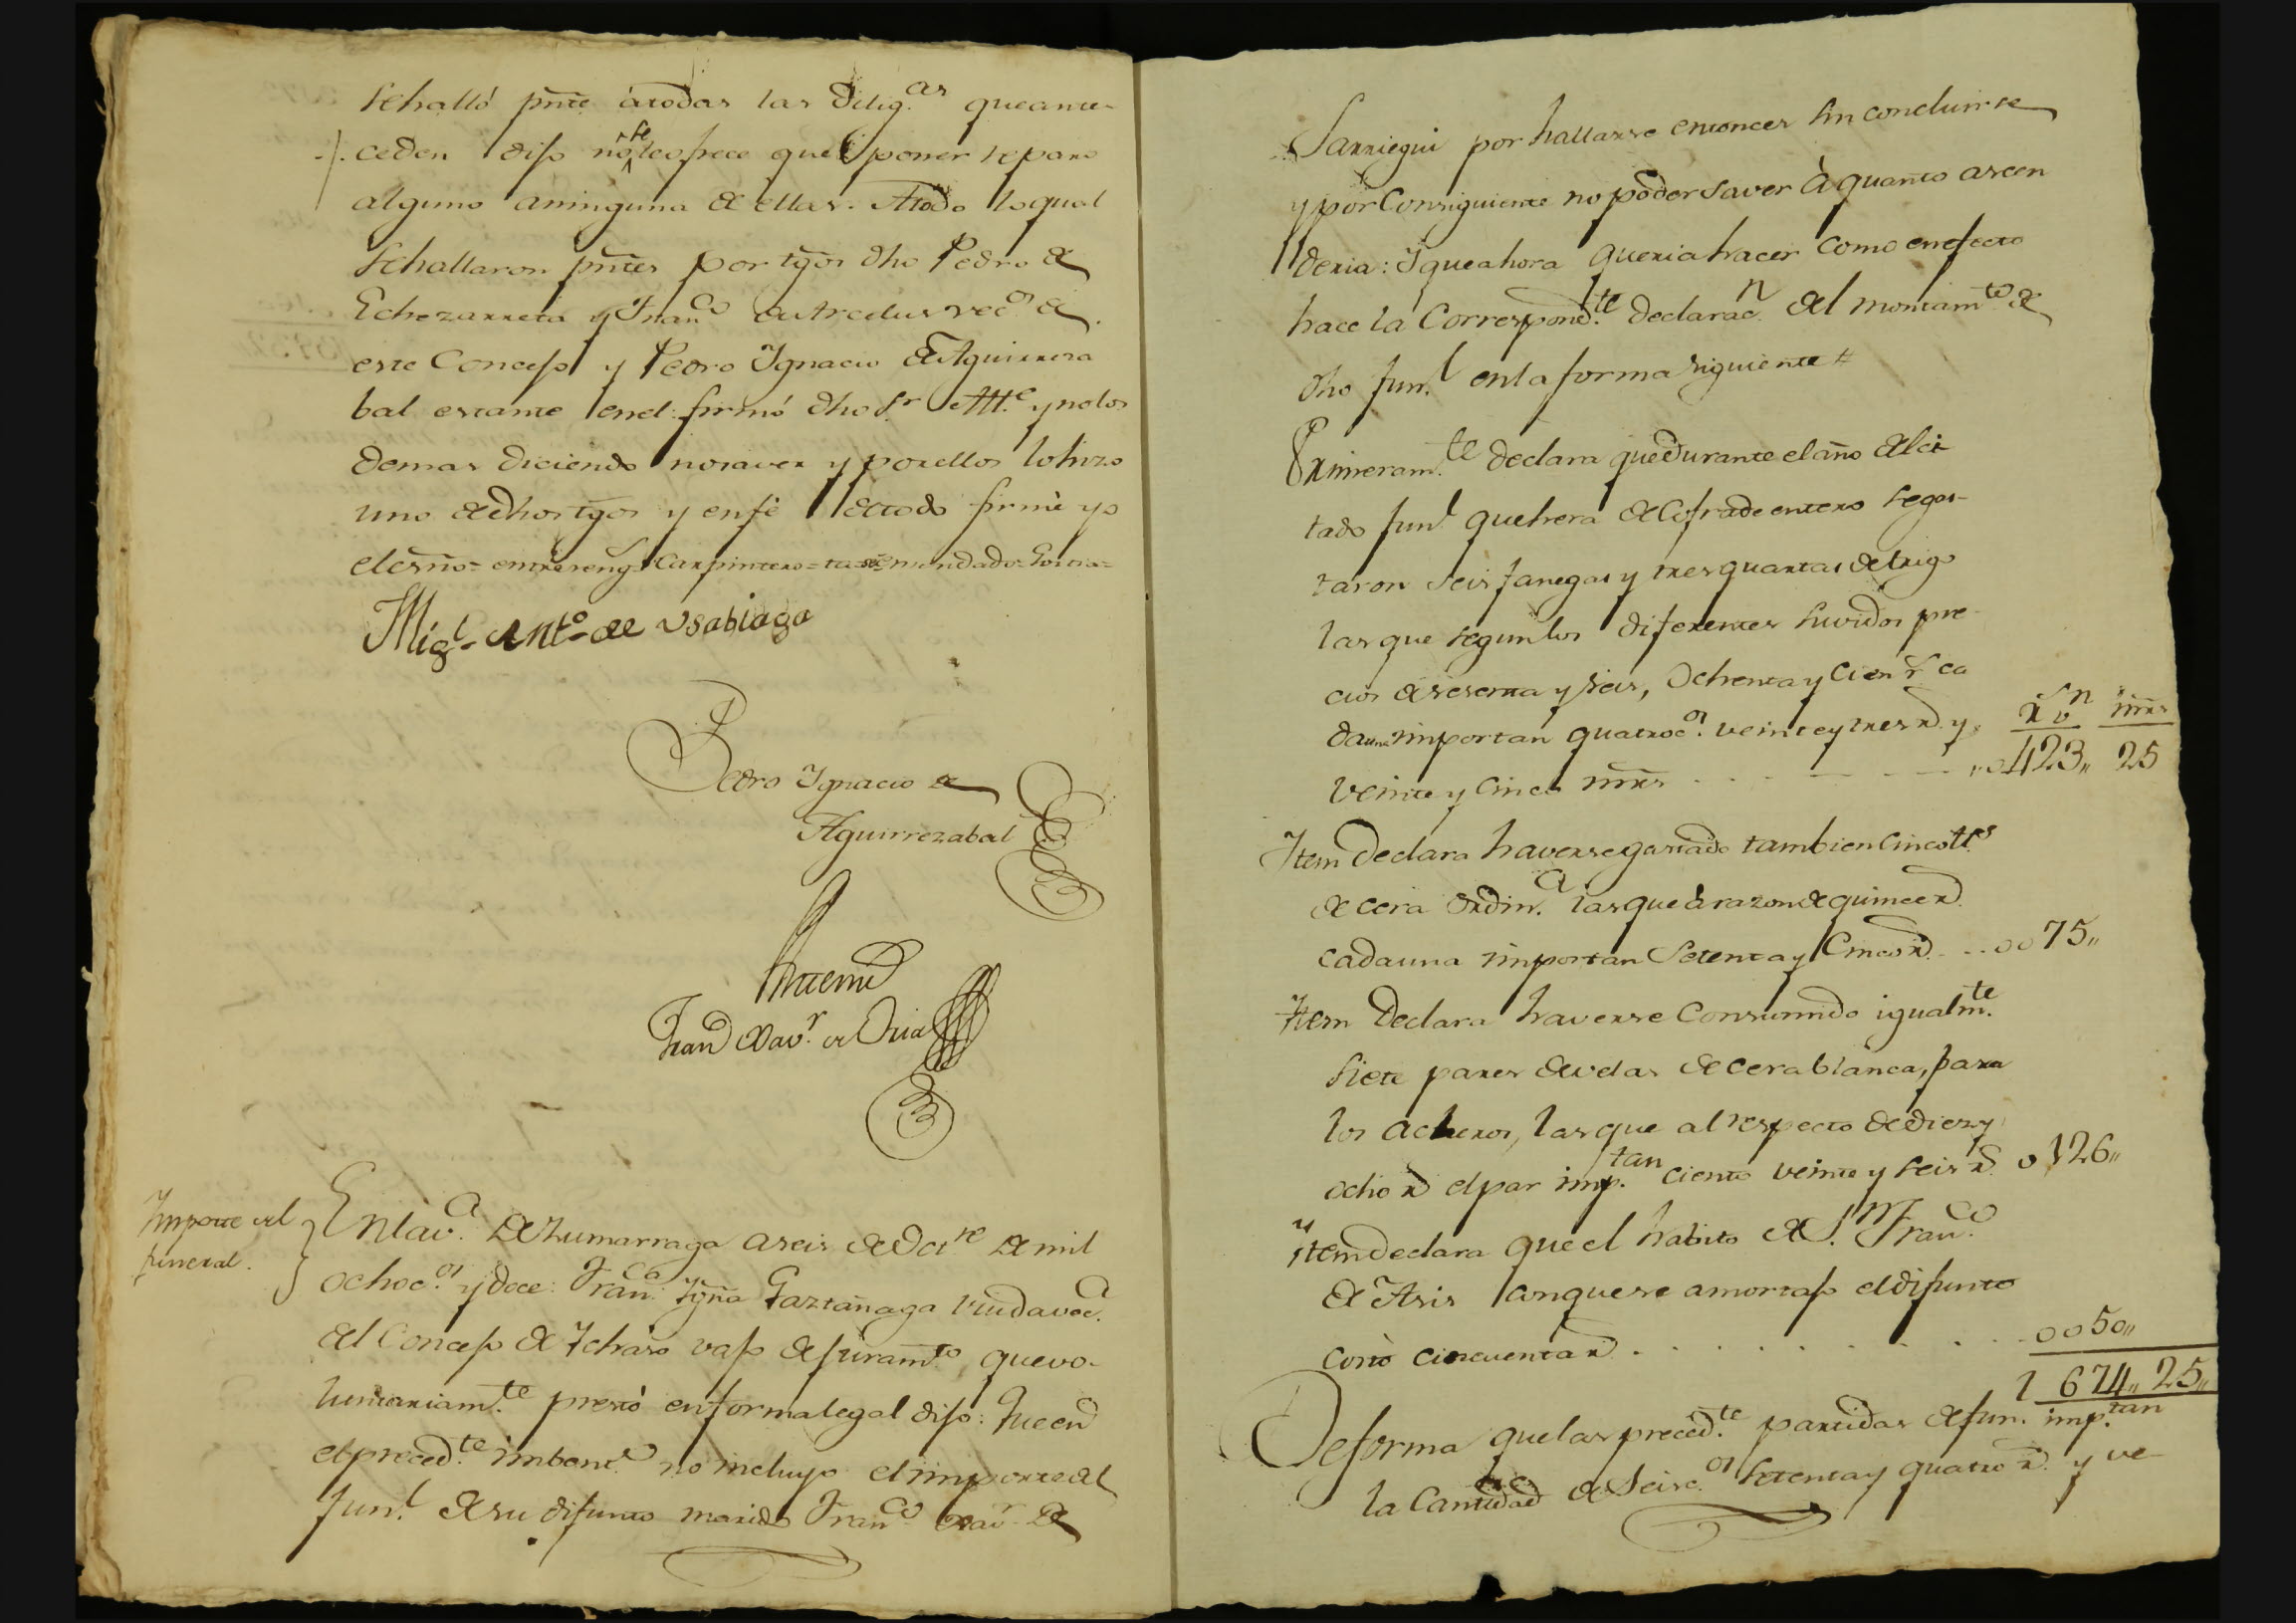 se halló pñte à todas las Dilig.as que ante-
ceden dijo no se le ofrece que poner reparo
alguno a ninguna de ellas. A todo lo qual
se hallaron pñtes por tgõs dho Pedro de
Echezarreta y Fran.co de Arcelus vec.os de
este Concejo y Pedro Ignacio de Aguirreza
bal estante en el: firmó dho S.r Alt.e y no los
demas diciendo no saver y por ellos lo hizo
uno de dhos tgõs y en fé de todo firmé yo
el esño= entre reng.s Carpintero= ta= se= enmendado=
Mig.l Ant.o de Usabiaga
Pedro Ignacio de
Aguirrezabal
Antemi
Fran.co Xav.r de Oria
Importe del
funeral.
En la v.a de Zumarraga a seis de Oct.re de mil
ochoc.os y doce: Fran.ca Ign.a Gaztañaga viuda vec.a
del Concejo de Ichaso vajo de juram.to que vo-
luntariam.te prestó en forma legal dijo: Que en
el preced.te imbent.o no incluyo el importe del
fun.l de su difunto marido Fran.co Xav.r de
Sarriegui por hallarse entonces sin concluirse
y por Consiguiente no poder saver à quanto ascen
deria: Y que ahora queria hacer como en efecto
hace la Correspond.te declarac.n del montam.to de
dho fun.l en la forma siguiente #
Primeram.te declara que durante el año del ci-
tado fun.l que hera de Cofrade entero se gas-
taron seis fanegas y tres quartas de trigo
las que segun los diferentes suvidos pre-
cios de sesenta y seis, Ochenta y Cien r.s ca
da una importan quatroc.os veinte y tres r.s y
r.s v.n mr̃s
veinte y cinco mr̃s - - - - - 0423,, 25
Item declara haverse gastado tambien Cinco lib.s
de cera Ordin.a las que à razon de quince r.s
cada una importan Setenta y Cinco r.s - - 0075,,
Item Declara haverse Consumido igualm.te
siete pares de velas de cera blanca, para
los acheros, las que al respecto de diez y
ocho r.s el par imp.tan ciento veinte y seis r.s 0126,,
Item declara que el habito de S.n Fran.co
de Asis con que se amortajo el difunto
costò cincuenta r.s . . . . . . . . . 0050,,
674,, 25,,
De forma que las preced.tes partidas de fun.l imp.tan
la Cantidad de Seisc.os setenta y quatro r.s y ve-